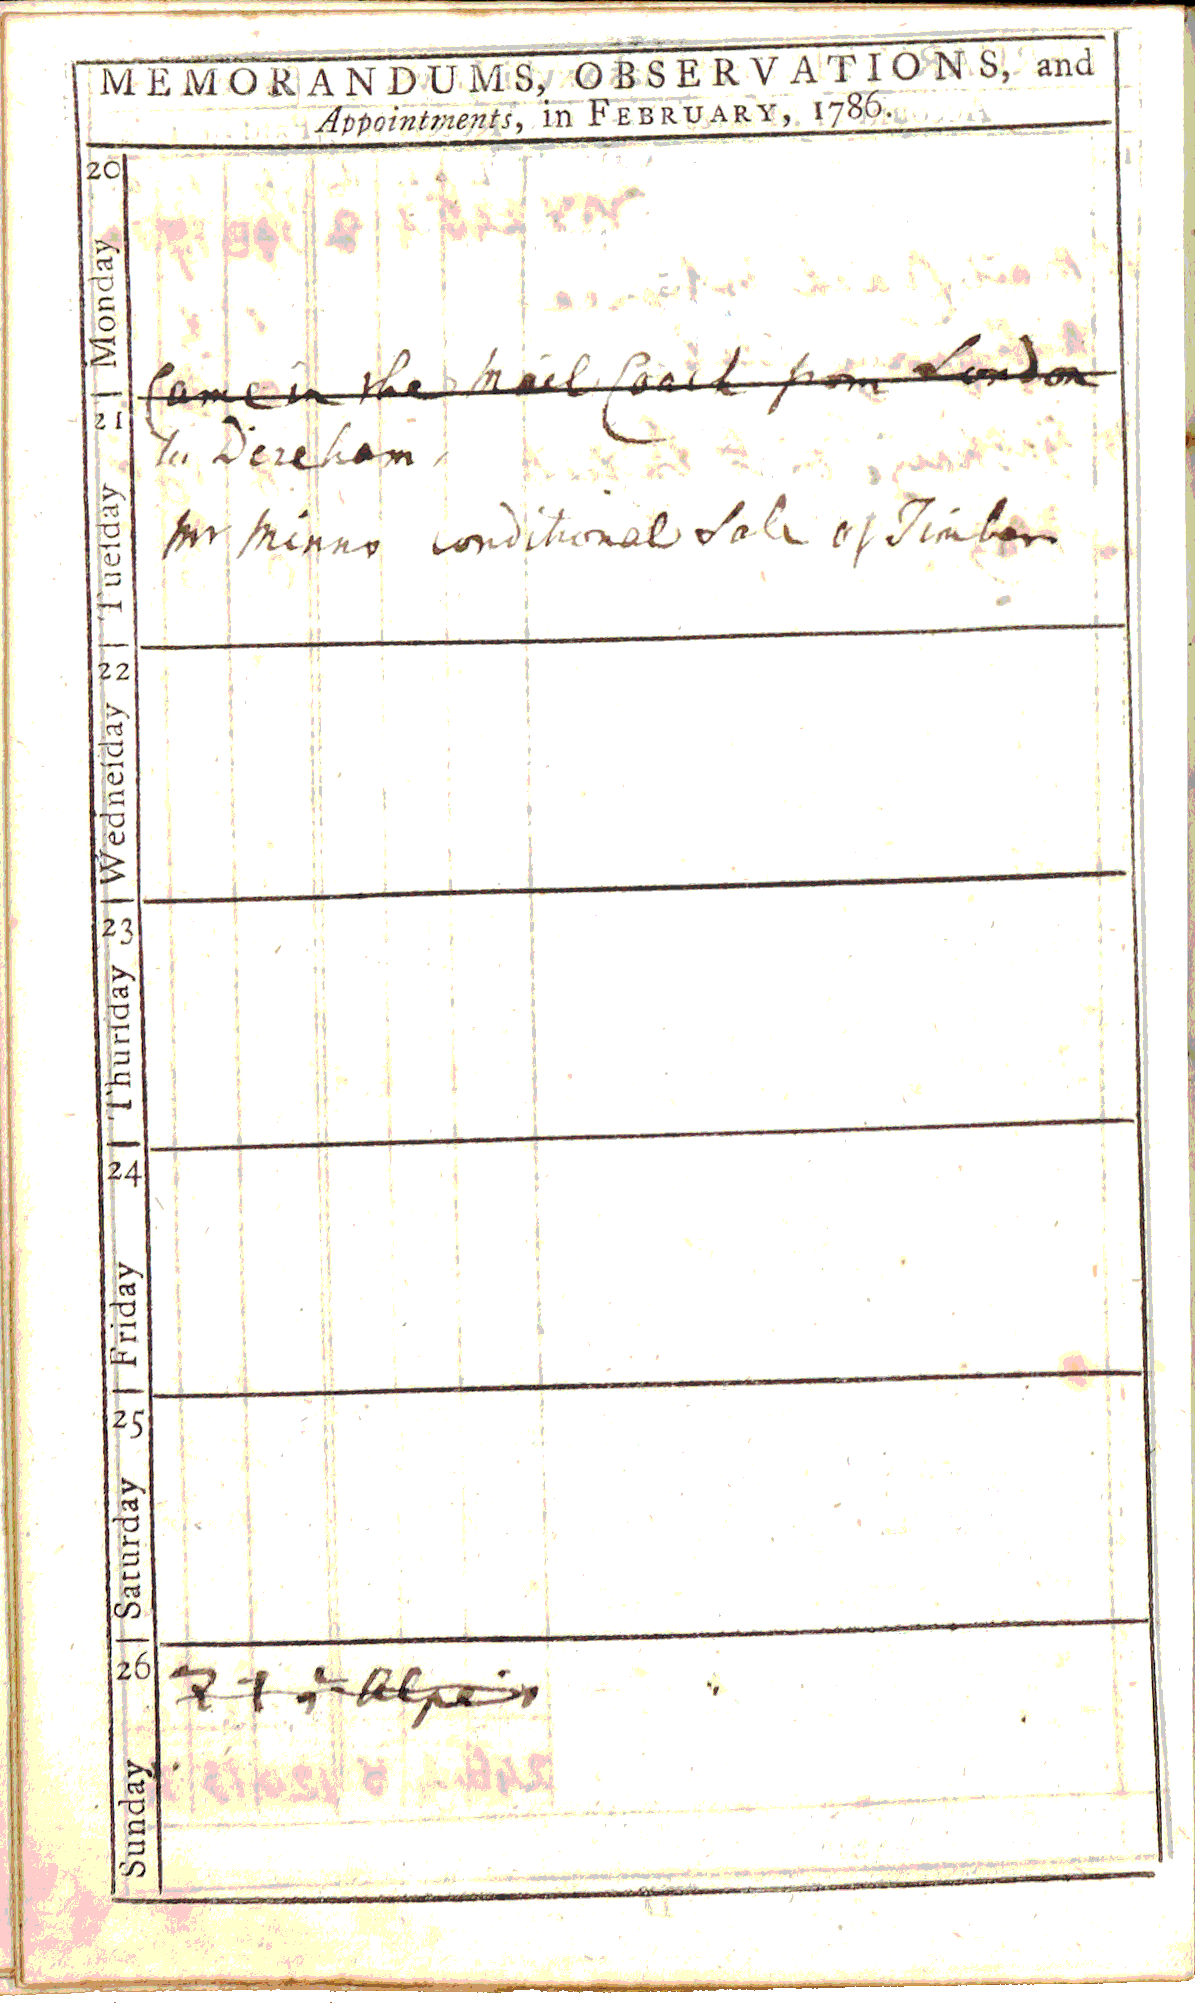 MEMORANDUMS, OBSERVATIONS, and
Appointments, in FEBRUARY, 1786.
20 Monday
Came in the Mail Coach from London
21 Tueſday
to Dereham
Mr Minns conditional Sale of Timber
22 Wedneſday
23 Thurſday
24 Friday
25 Saturday
26 Sunday